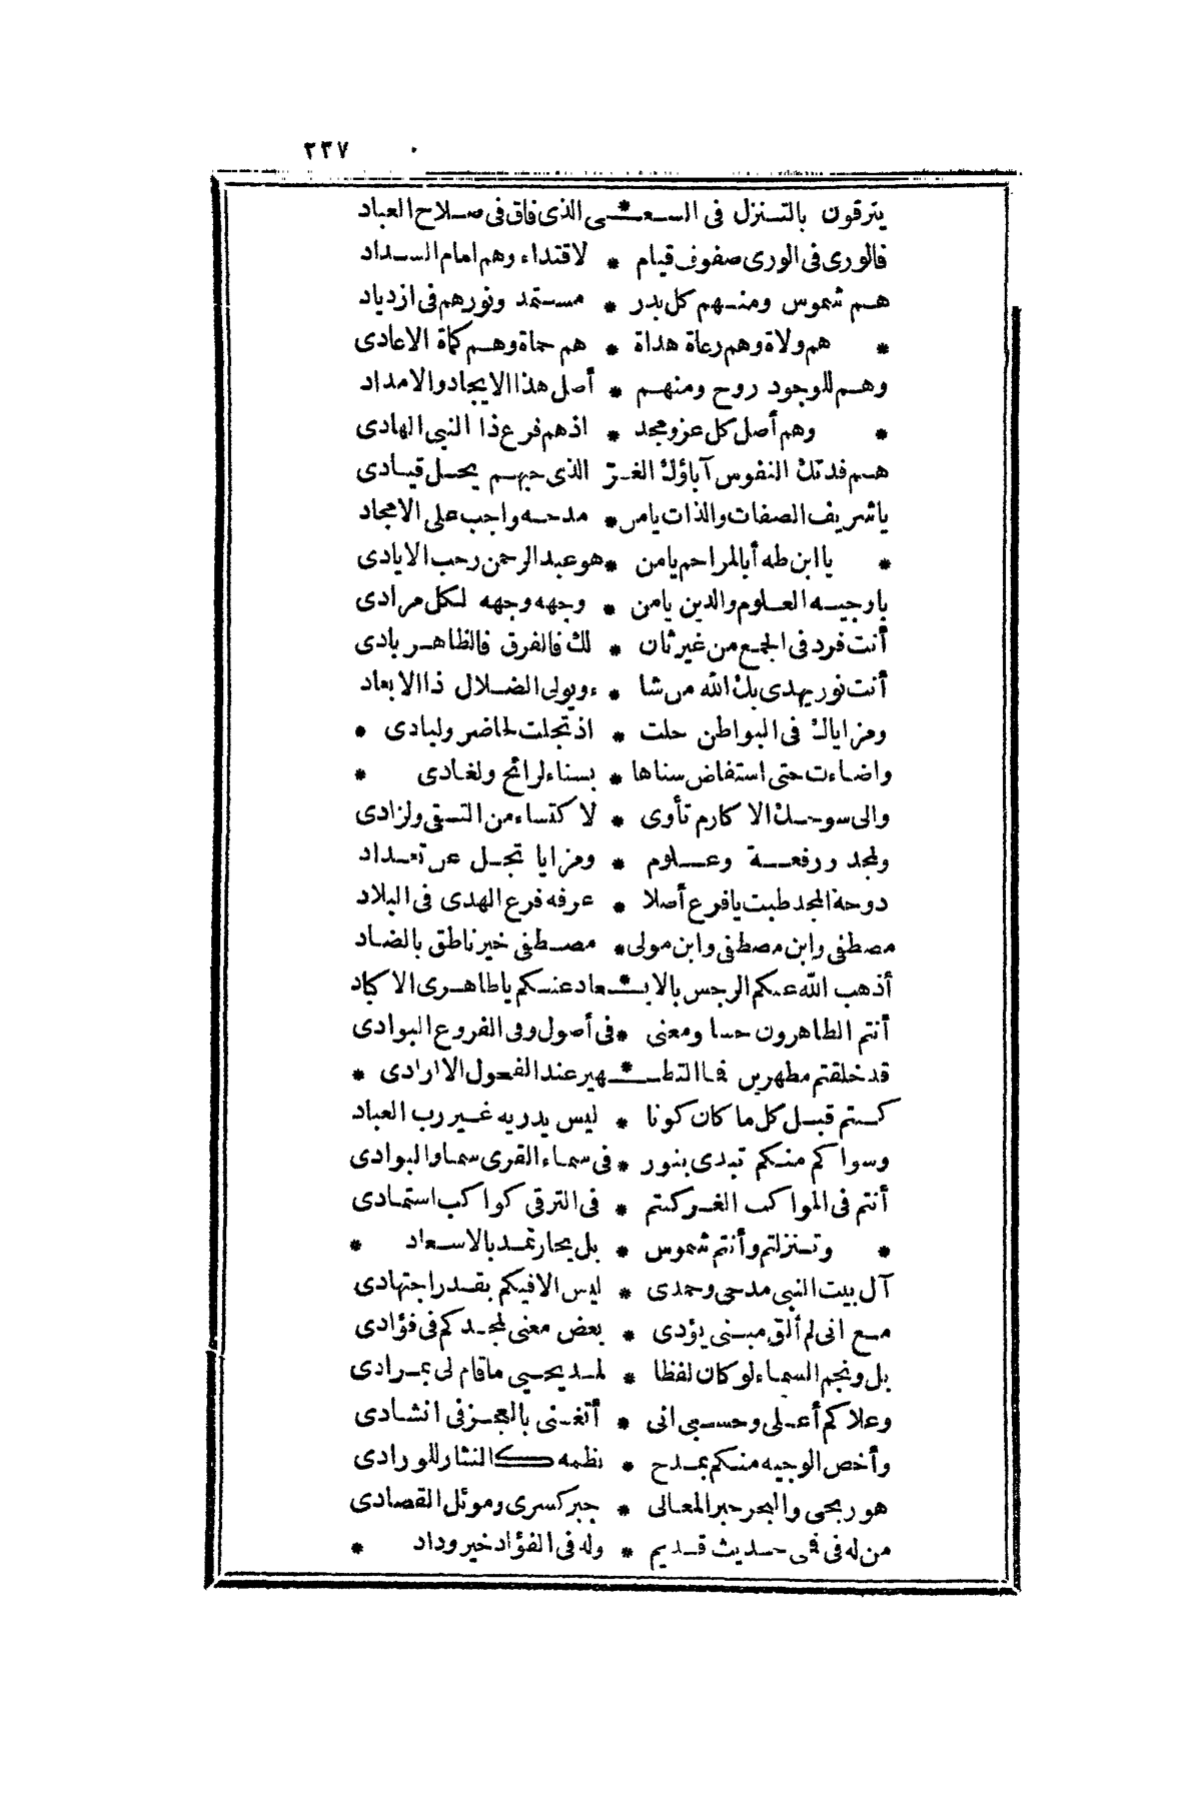 ٢٣٧
يترقون بالتنزل فى السعى * الذى فاق فى صلاح العباد
فالورى فى الورى صفوف قيام * لاقتداء وهم امام السداد
هم شموس ومنهم كل بدر * مستمد ونورهم فى ازدياد
* هم ولاة وهم رعاة هداة * هم حماة وهم كماة الاعادى
وهم للوجود روح ومنهم * أصل هذا الايجاد والامداد
* وهم أصل كل عز ومجد * اذهم فرع ذا النبى الهادى
هم فدتك النفوس آباؤك الغر الذى حبهم يحل قيادى
ياشريف الصفات والذات يامن * مدحه واجب على الامجاد
* يا ابن طه أبا المراحم يامن * هو عبد الرحمن رحب الايادى
ياوجيه العلوم والدين يامن * وجهه وجهه لكل مرادى
أنت فرد فى الجمع من غير ثان * لك فالفرق فالظاهر بادى
أنت نور يهدى بك الله من شا * ء ويولى الضلال ذا الابعاد
ومزاياك فى البواطن حلت * اذ تجلت لحاضر ولبادى *
واضاءت حتى استفاض سناها * بسناء لرائح ولغادى *
والى سوحك الاكارم تأوى * لاكتساء من التقى ولزادى
ولمجد ورفعة وعلوم * ومزايا تجل عن تعداد
دوحة المجد طبت يافرع أصلا * عرفه فرع الهدى فى البلاد
مصطفى وابن مصطفى وابن مولى * مصطفى خير ناطق بالضاد
أذهب الله عنكم الرجس بالاب * عاد عنكم ياطاهرى الاكباد
أنتم الطاهرون حسا ومعنى * فى أصول وفى الفروع البوادى
قد خلقتم مطهرين فما التط * هير عند الفحول الا ارادى *
كنتم قبل كل ما كان كونا * ليس يدريه غير رب العباد
وسواكم منكم تبدى بنور * فى سماء القرى سما والبوادى
أنتم فى المواكب الغر كنتم * فى الترقى كواكب استمادى
* وتنزلتم وأنتم شموس * بل بحار تمد بالاسعاد *
آل بيت النبى مدحى وحمدى * ليس الا فيكم بقدر اجتهادى
مع انى لم ألق مبنى يؤدى * بعض معنى لمجدكم فى فؤادى
بل ونجم السماء لو كان لفظا * لمديحى ما قام لى بمرادى
وعلاكم أعلى وحسبى انى * أتغنى بالعجز فى انشادى
وأخص الوجيه منكم بمدح * نظمه كالنثار للورادى
هو ربحى والبحر حبر المعالى * جبر كسرى وموئل القصادى
من له فى فمى حديث قديم * وله فى الفؤاد خير وداد *